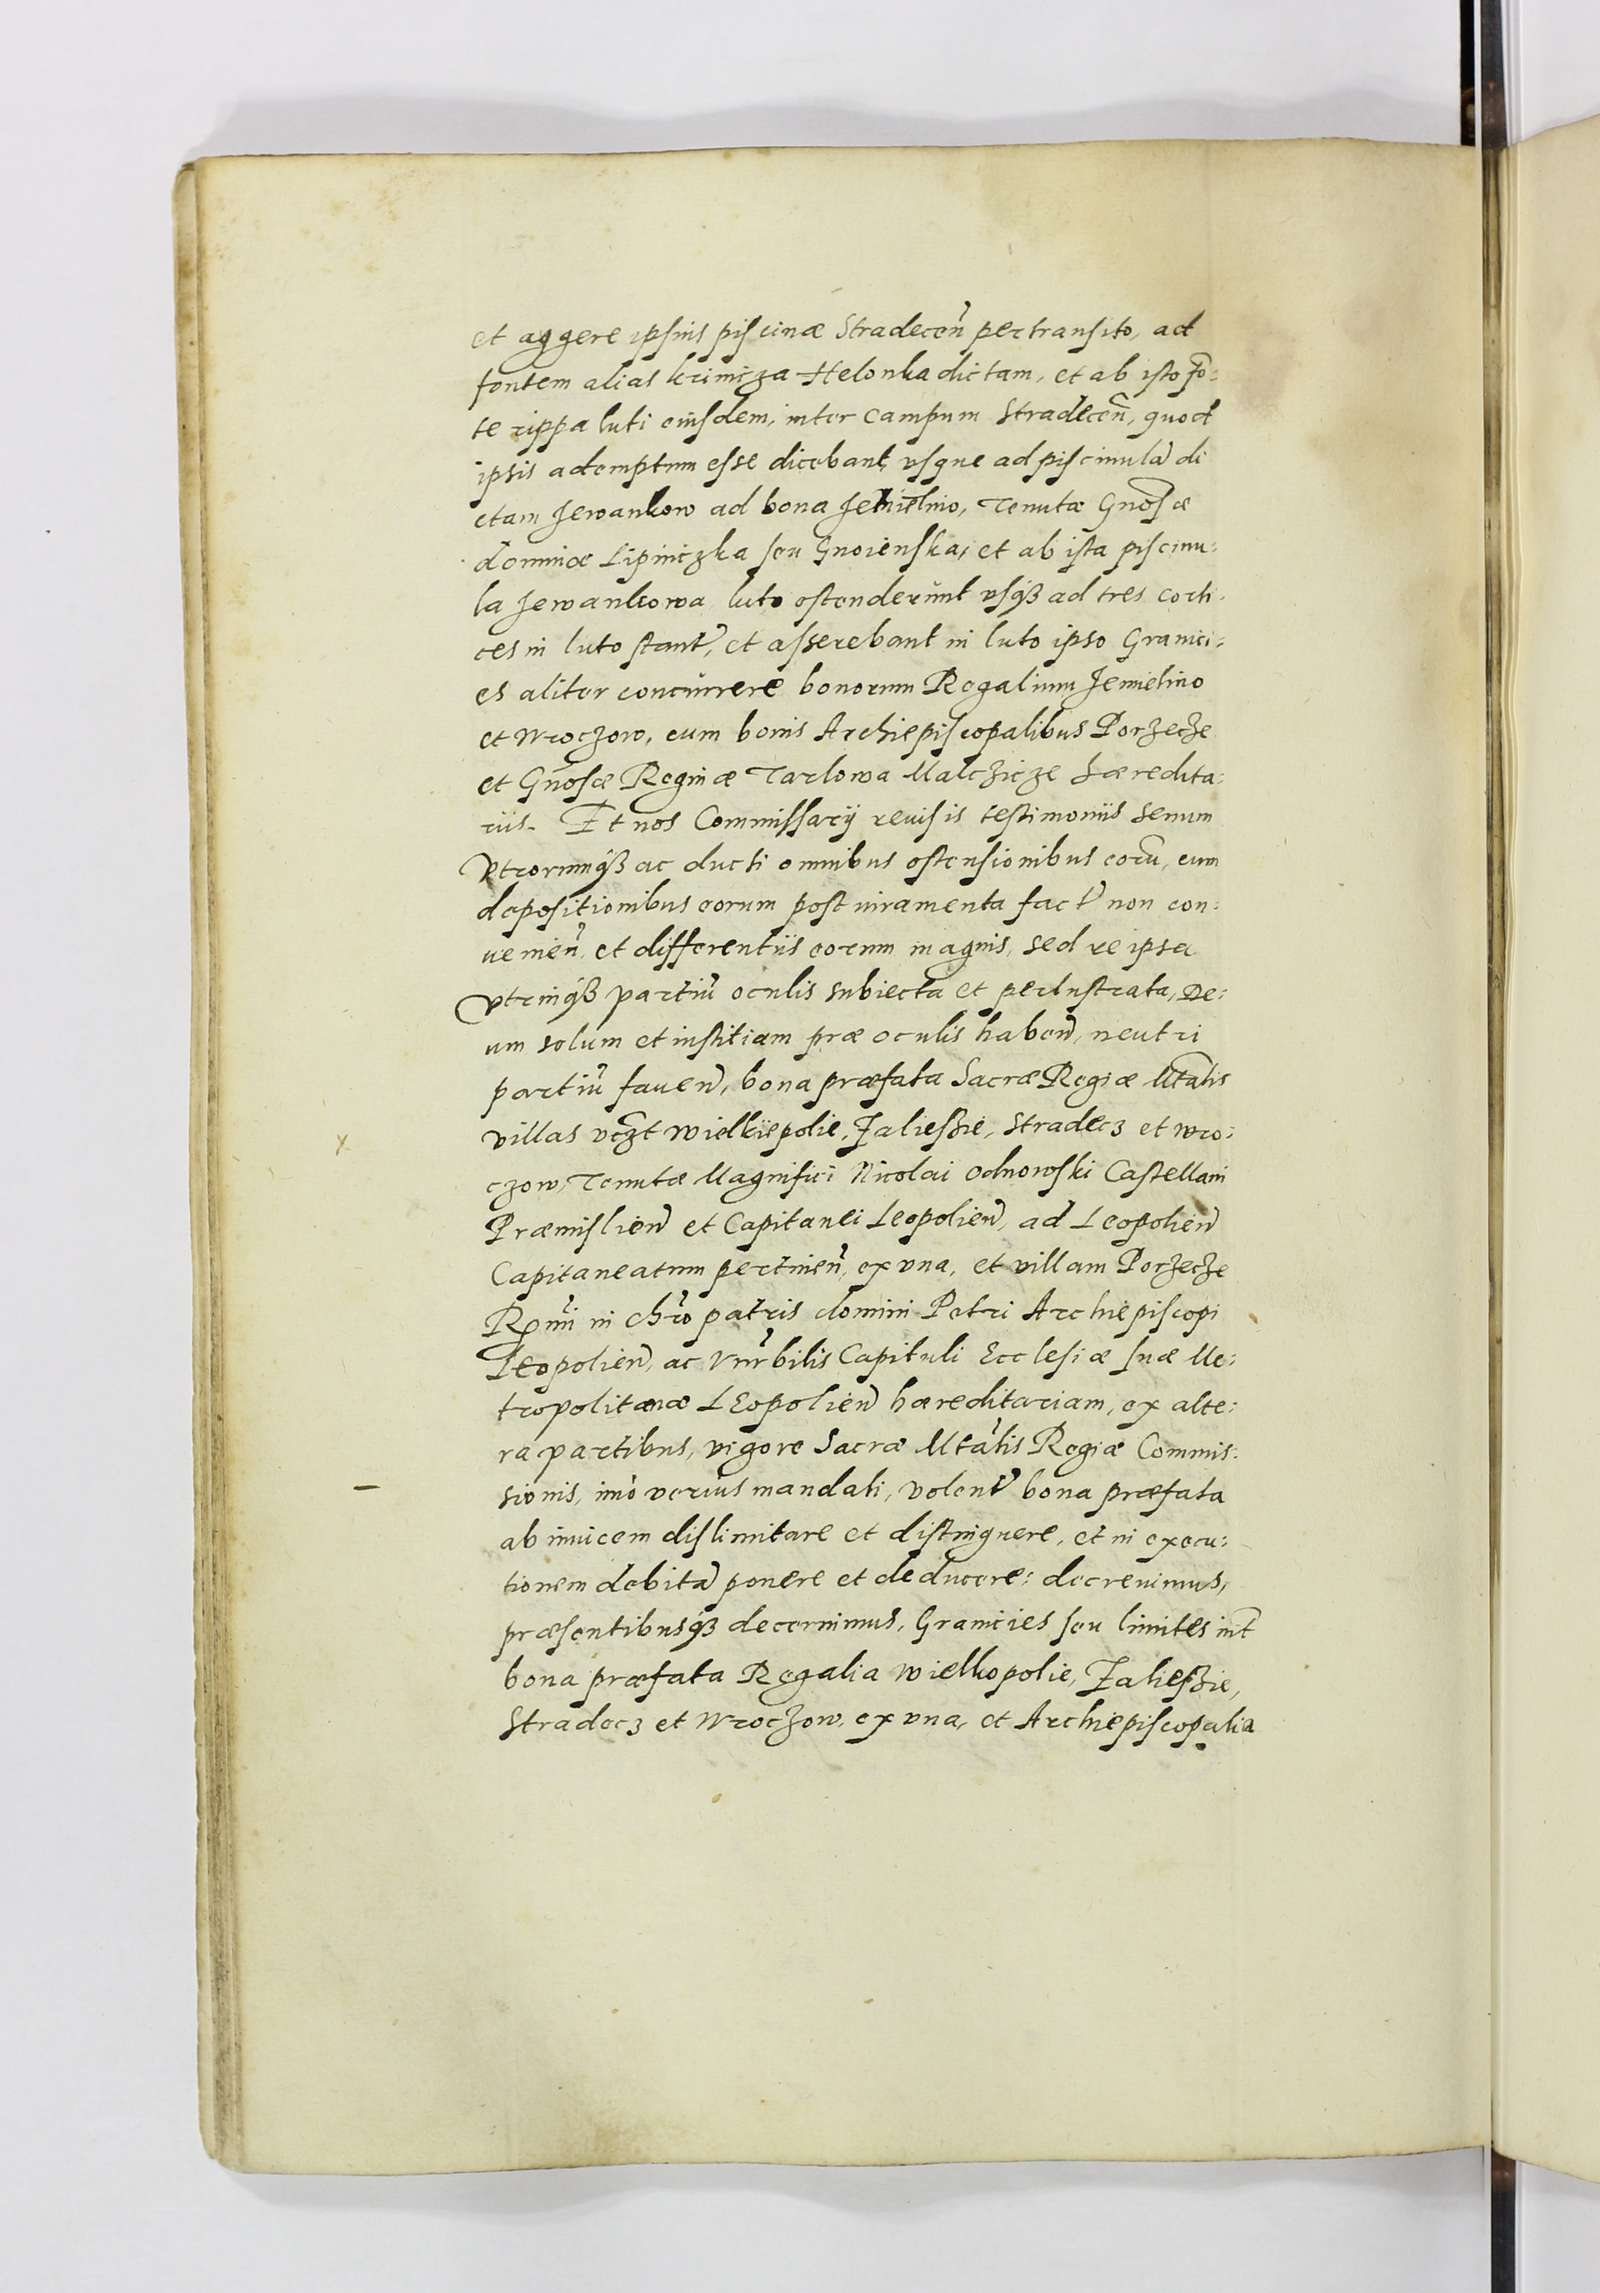 et aggere ipsius piscinæ Stradecen̄ pertransito, ad
fontem alias krinicza Helonka dictam, et ab isto fō:
te rippa luti eiusdem, inter campum Stradecen̄, quod
ipsis ademptum esse dicebant, vsque ad piscinulā di
ctam Jewankow ad bona Jemielno, Tenutæ Gnosæ
dominæ Lipniczka seu Gnoienska, et ab ista piscinu:
la Jewankowa luto ostenderunt vsqȝ ad tres corti:
ces in luto stant̄, et asserebant in luto ipso Granici:
es aliter concurrere bonorum Regalium Jemielino
et Wroczow, cum bonis Archiepiscopalibus Porzecze
et Gnosæ Reginæ Tarlowa Malczicze hæredita:
riis. Et nos Commissarij reuisis testimoniis senum
Vtrorumqȝ ac ducti omnibus ostensionibus eorū, cum
depositionibus eorum post iuramenta fact̄ non con:
uenien̄, et differentiis eorum magnis, sed re ipsa
vtrinqȝ partiū oculis subiecta et perlustrata, De:
um solum et iustitiam præ oculis haben̄, neutri
partiū faven̄, bona præfata Sacræ Regiæ Mtātis
villas vczt Wielkiepolie, Zaliesszie, Stradecz et Wro:
czow, Tenutæ Magnifici Nicolai Odnowski Castellani
Præmislien̄ et Capitanei Leopolien̄, ad Leopolien̄
Capitaneatum pertinen̄, ex vna, et villam Porzecze
Rp̄mi in chr̄o patris domini Petri Archiepiscopi
Leopolien̄, ac Vnr̄bilis Capituli Ecclesiæ suæ Me:
tropolitanæ LEopolien̄ hæreditariam, ex alte:
ra partibus, vigore Sacræ Mtātis Regiæ Commis:
sionis, imò verius mandati, volent̄ bona præfata
ab inuicem dislimitare et distinguere, et in execu:
tionem debitā ponere et deducere: decreuimus,
præsentibusqȝ decernimus, Granicies seu limites int̄
bona præfata Regalia Wielkopolie, Zaliesszie,
Stradecz et Wroczow, ex vna, et Archiepiscopalia